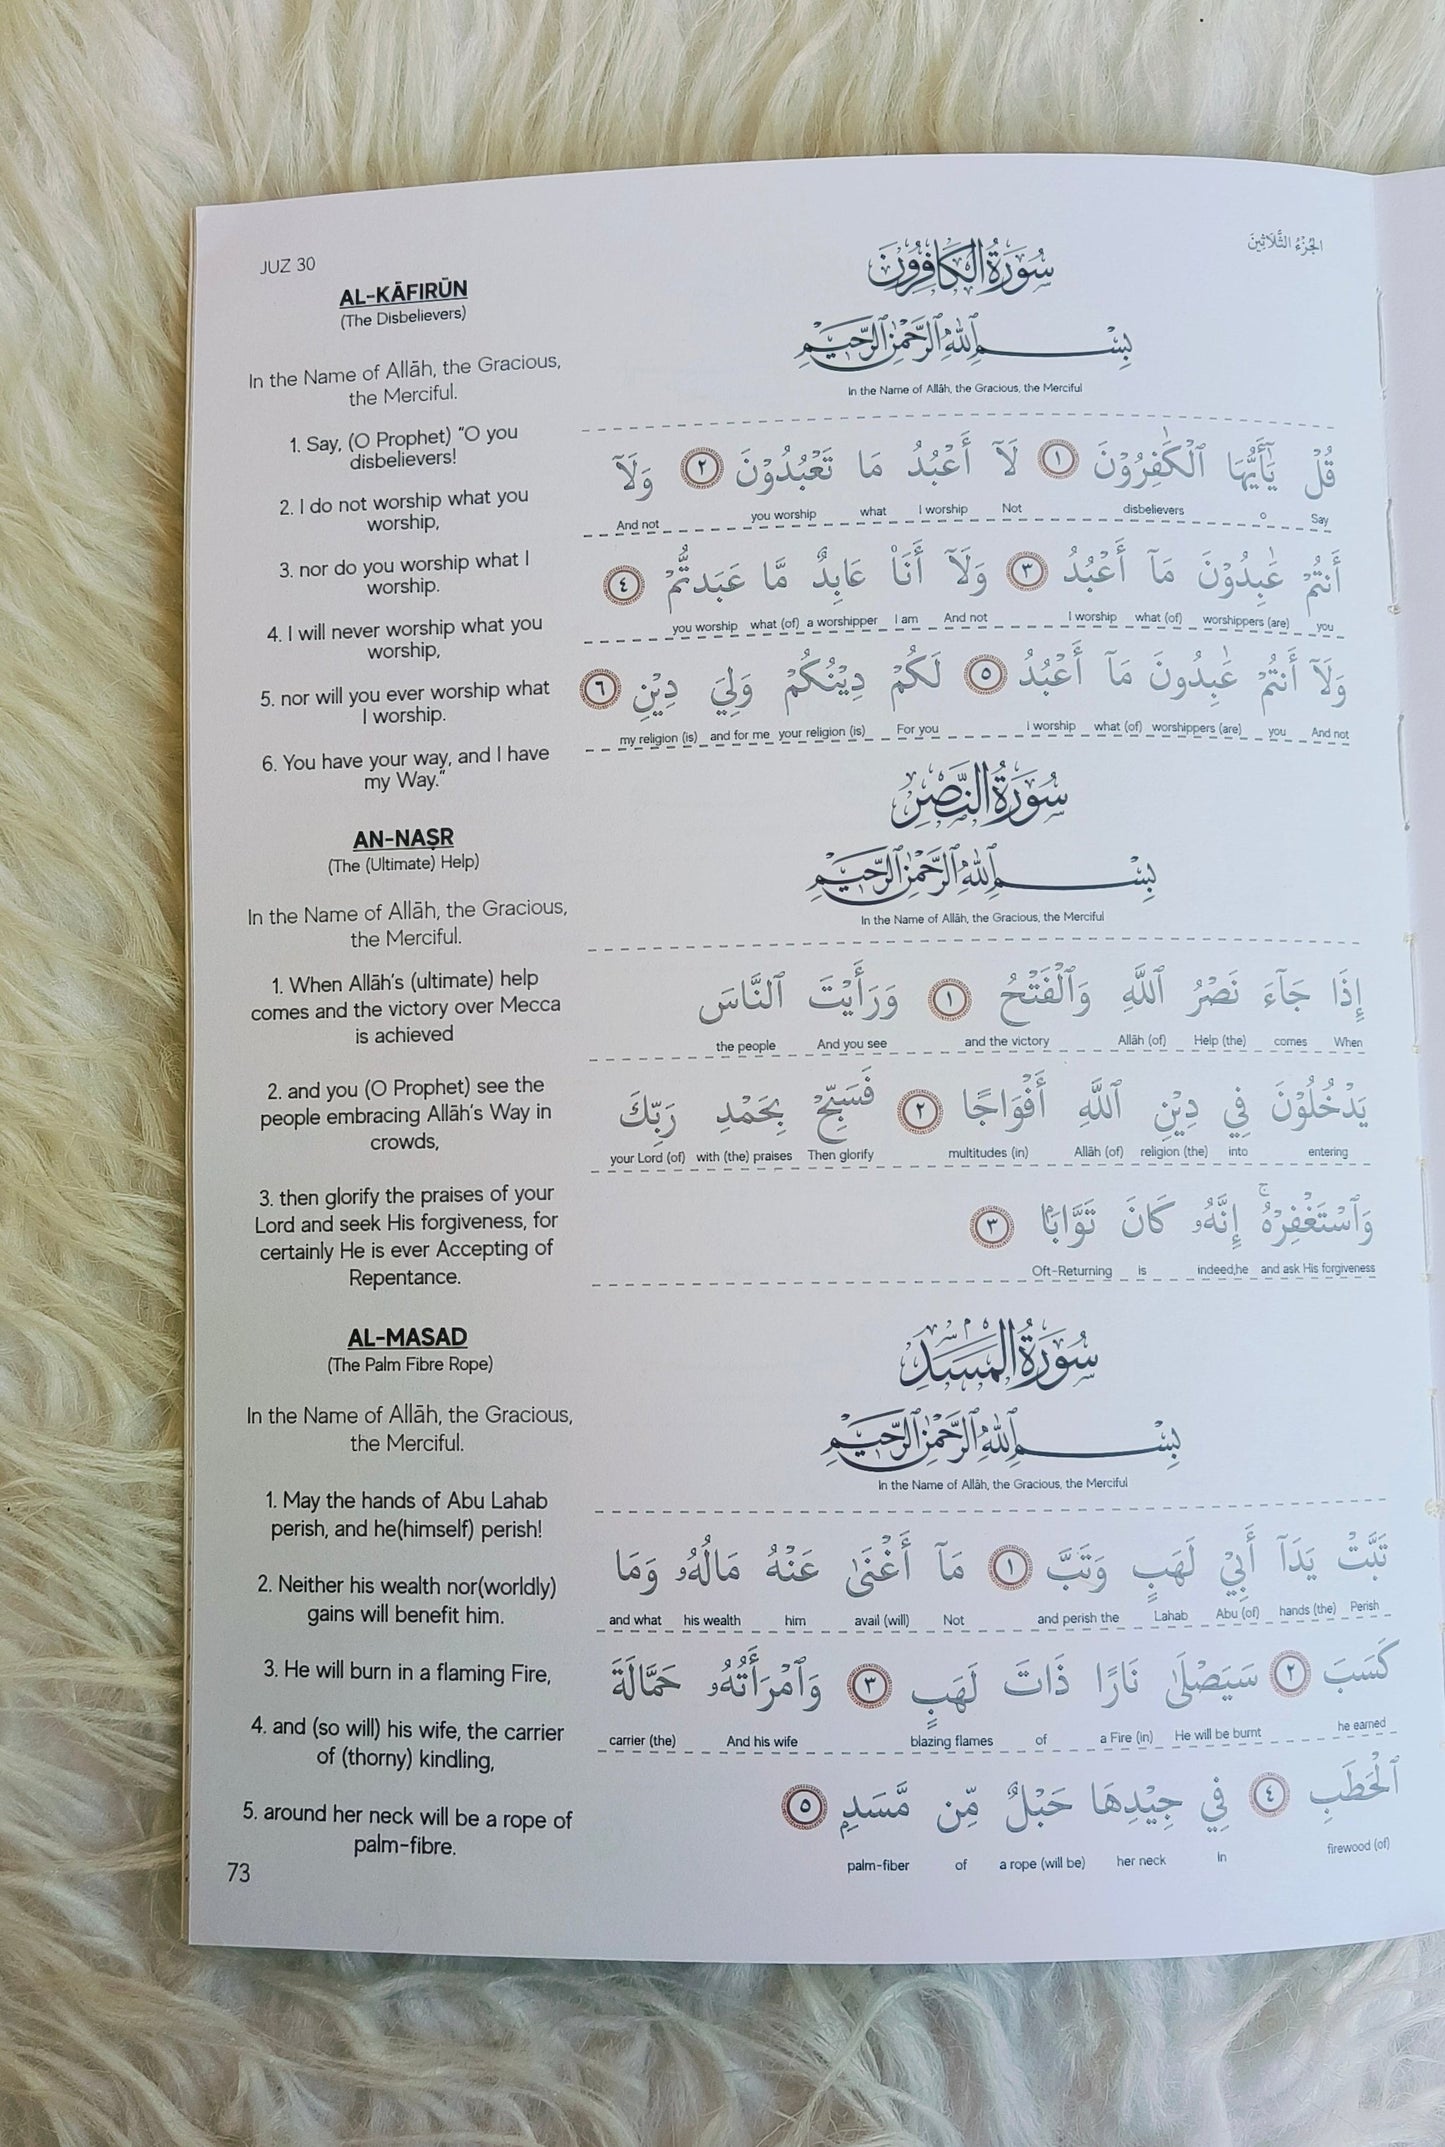 JUZ 30
الجزء الثلاثين
AL-KĀFIRŪN
(The Disbelievers)
In the Name of Allāh, the Gracious,
the Merciful.
1. Say, (O Prophet) "O you
disbelievers!
2. I do not worship what you
worship,
3. nor do you worship what I
worship.
4. I will never worship what you
worship,
5. nor will you ever worship what
I worship.
6. You have your way, and I have
my Way."
سُورَةُ الكَافِرُونَ
بِسْمِ اللهِ الرَّحْمٰنِ الرَّحِيمِ
In the Name of Allāh, the Gracious, the Merciful
قُلْ يَٰٓأَيُّهَا ٱلْكَٰفِرُوْنَ ١ لَآ أَعْبُدُ مَا تَعْبُدُوْنَ ٢ وَلَآ
And not you worship what I worship Not disbelievers O Say
أَنتُمْ عَٰبِدُوْنَ مَآ أَعْبُدُ ٣ وَلَآ أَنَا۠ عَابِدٌ مَّا عَبَدتُّمْ ٤
you worship what (of) a worshipper I am And not I worship what (of) worshippers (are) you
وَلَآ أَنتُمْ عَٰبِدُونَ مَآ أَعْبُدُ ٥ لَكُمْ دِيْنُكُمْ وَلِيَ دِيْنِ ٦
my religion (is) and for me your religion (is) For you I worship what (of) worshippers (are) you And not
AN-NAṢR
(The (Ultimate) Help)
In the Name of Allāh, the Gracious,
the Merciful.
1. When Allāh's (ultimate) help
comes and the victory over Mecca
is achieved
2. and you (O Prophet) see the
people embracing Allāh's Way in
crowds,
3. then glorify the praises of your
Lord and seek His forgiveness, for
certainly He is ever Accepting of
Repentance.
سُورَةُ النَّصْرِ
بِسْمِ اللهِ الرَّحْمٰنِ الرَّحِيمِ
In the Name of Allāh, the Gracious, the Merciful
إِذَا جَآءَ نَصْرُ ٱللَّهِ وَٱلْفَتْحُ ١ وَرَأَيْتَ ٱلنَّاسَ
the people And you see and the victory Allāh (of) Help (the) comes When
يَدْخُلُوْنَ فِي دِيْنِ ٱللَّهِ أَفْوَاجًا ٢ فَسَبِّحْ بِحَمْدِ رَبِّكَ
your Lord (of) with (the) praises Then glorify multitudes (in) Allāh (of) religion (the) into entering
وَٱسْتَغْفِرْهُ ۚ إِنَّهُۥ كَانَ تَوَّابًۢا ٣
Oft-Returning is indeed,he and ask His forgiveness
AL-MASAD
(The Palm Fibre Rope)
In the Name of Allāh, the Gracious,
the Merciful.
1. May the hands of Abu Lahab
perish, and he(himself) perish!
2. Neither his wealth nor(worldly)
gains will benefit him.
3. He will burn in a flaming Fire,
4. and (so will) his wife, the carrier
of (thorny) kindling,
5. around her neck will be a rope of
palm-fibre.
سُورَةُ المَسَدِ
بِسْمِ اللهِ الرَّحْمٰنِ الرَّحِيمِ
In the Name of Allāh, the Gracious, the Merciful
تَبَّتْ يَدَآ أَبِيْ لَهَبٍ وَتَبَّ ١ مَآ أَغْنَىٰ عَنْهُ مَالُهُۥ وَمَا
and what his wealth him avail (will) Not and perish the Lahab Abu (of) hands (the) Perish
كَسَبَ ٢ سَيَصْلَىٰ نَارًا ذَاتَ لَهَبٍ ٣ وَٱمْرَأَتُهُۥ حَمَّالَةَ
carrier (the) And his wife blazing flames of a Fire (in) He will be burnt he earned
ٱلْحَطَبِ ٤ فِي جِيْدِهَا حَبْلٌ مِّن مَّسَدٍ ٥
palm-fiber of a rope (will be) her neck In firewood (of)
73